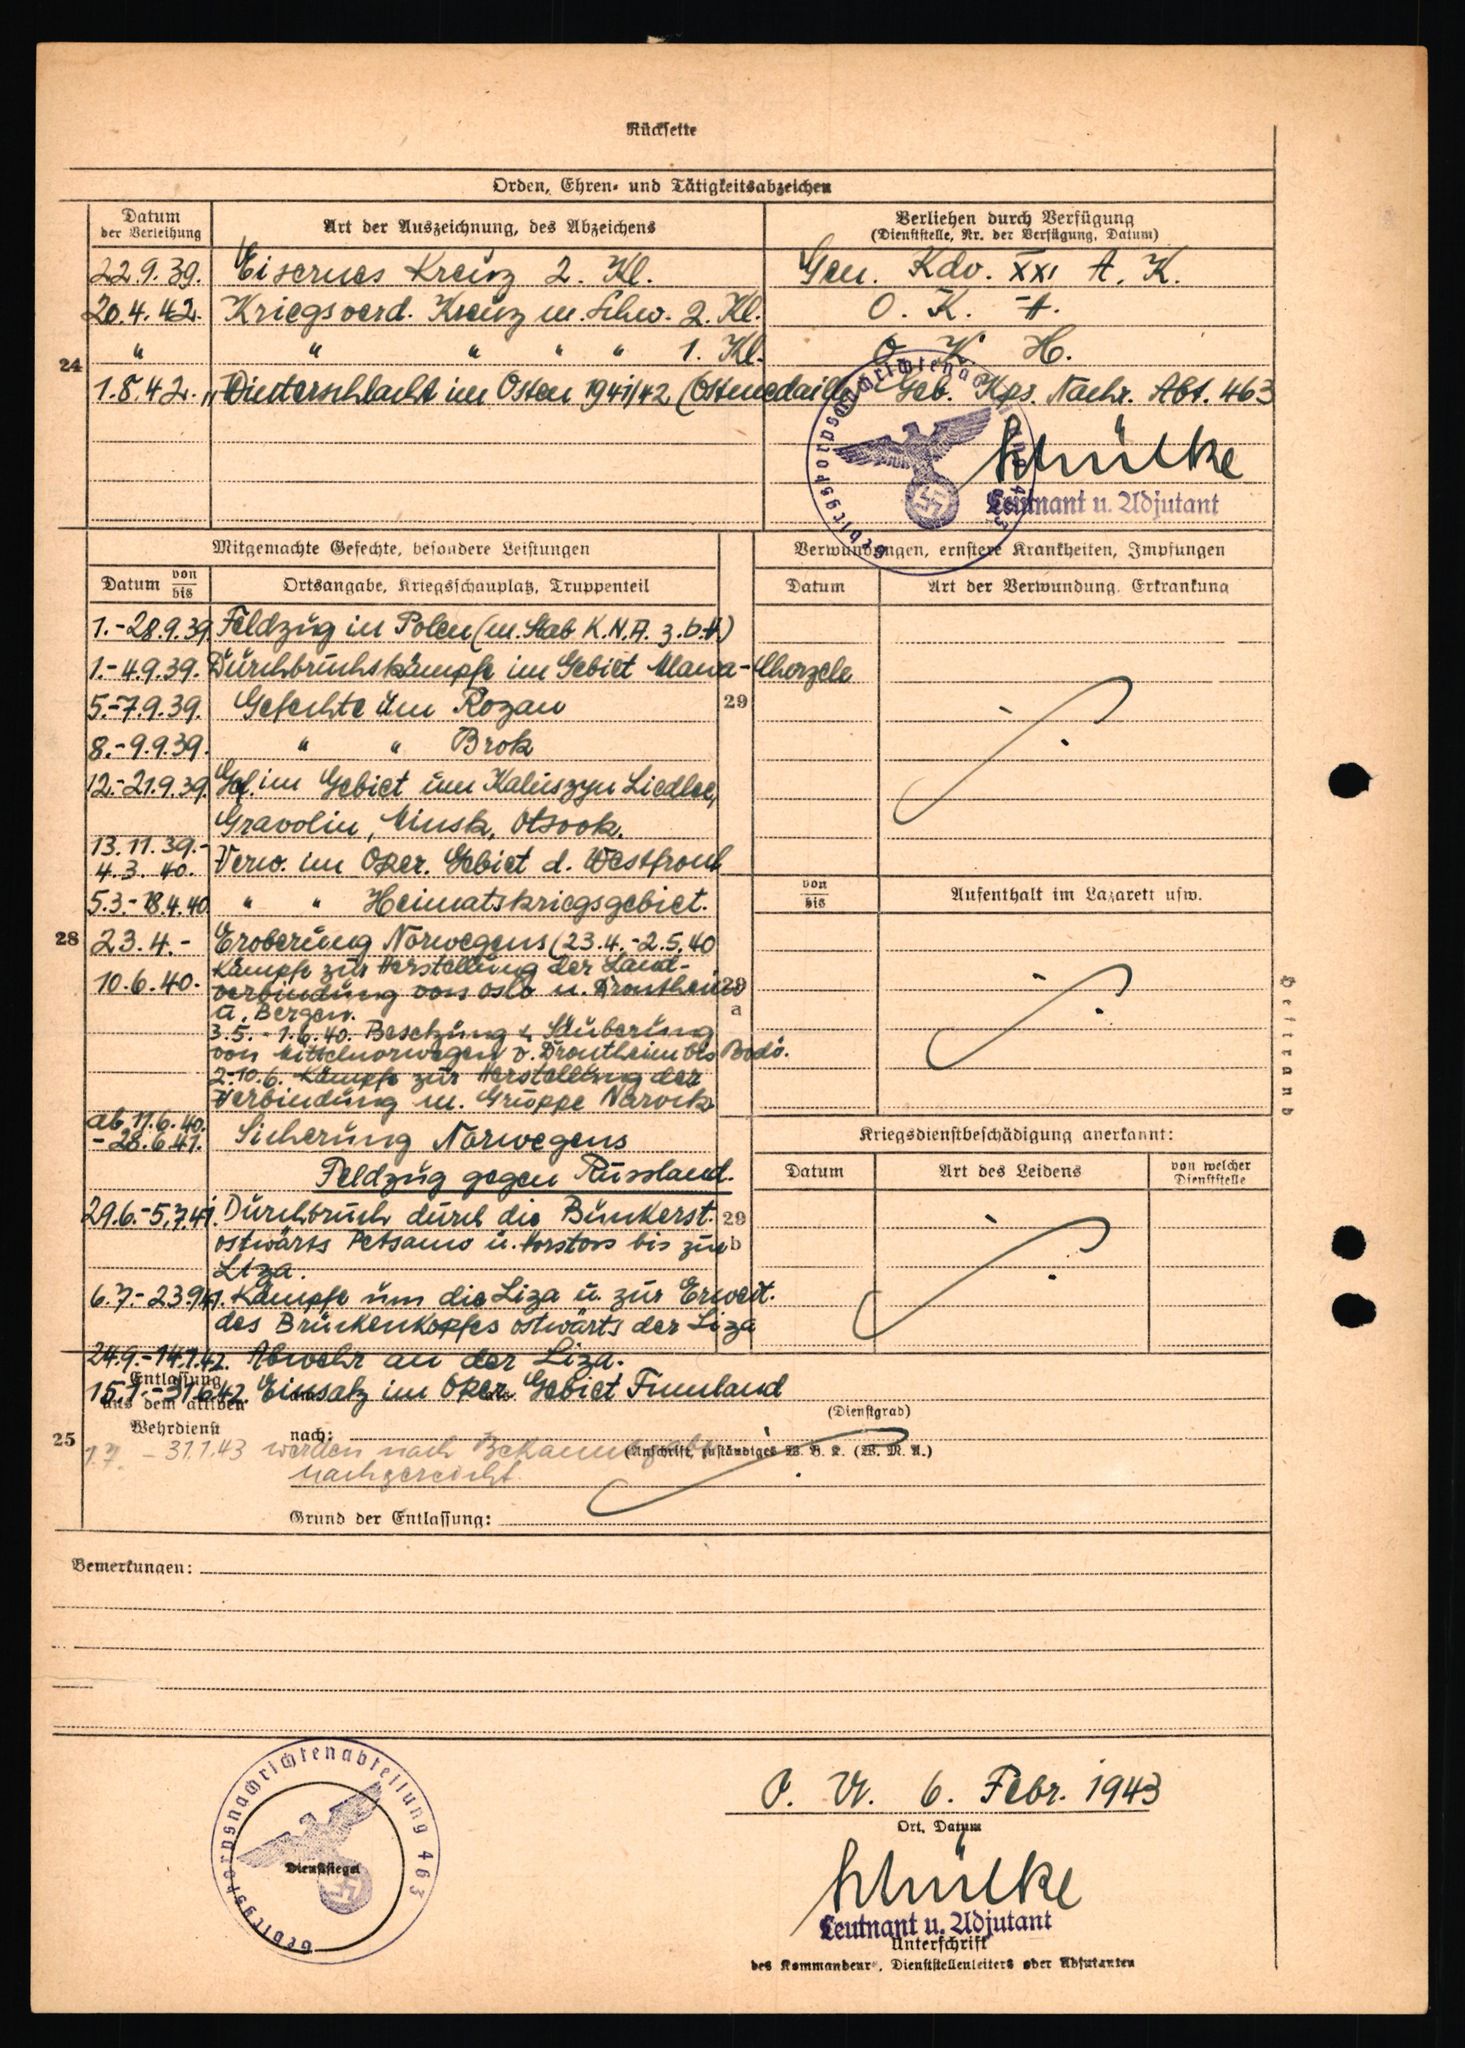 Rückseite
Orden, Ehren- und Tätigkeitsabzeichen
Datum der Verleihung
Art der Auszeichnung, des Abzeichens
Verliehen durch Verfügung
(Dienststelle, Nr. der Verfügung, Datum)
24
22.9.39. Eisernes Kreuz 2. Kl. Gen. Kdo. XXI A. K.
20.4.42. Kriegsverd. Kreuz m. Schw. 2. Kl. O. K. H.
" " " " " 1. Kl. O. K. H.
1.8.42. „Winterschlacht im Osten 1941/42 (Ostmedaille) Geb. Kps. Nachr. Abt. 463
Schülke
Leutnant u. Adjutant
Gebirgskorpsnachrichtenabteilung 463
Mitgemachte Gefechte, besondere Leistungen
Datum von bis
Ortsangabe, Kriegsschauplatz, Truppenteil
28
1.-28.9.39. Feldzug in Polen (m. Stab K.N.A. z.b.V.)
1.-4.9.39. Durchbruchskämpfe im Gebiet Mlawa-Chorzele
5.-7.9.39. Gefechte um Rozan
8.-9.9.39. " " Brok
12.-21.9.39. Gef. im Gebiet um Kaluszyn Siedlce,
Gravolin, Minsk, Otwock.
13.11.39.-
4.3.40. Verw. im Oper. Gebiet d. Westfront
5.3.-18.4.40 " " Heimatskriegsgebiet.
23.4.- Eroberung Norwegens (23.4.-2.5.40
10.6.40. Kämpfe zur Herstellung der Land-
verbindung von Oslo n. Drontheim
u. Bergen.
3.5.-1.6.40. Besetzung u. Säuberung
von Mittelnorwegen v. Drontheim bis Bodö.
2.-10.6. Kämpfe zur Herstellung der
Verbindung m. Gruppe Narvik
ab 11.6.40.
-28.6.41. Sicherung Norwegens
Feldzug gegen Russland.
29.6.-5.7.41. Durchbruch durch die Bunkerst.
ostwärts Petsamo u. Vorstoss bis zur
Liza.
6.7.-23.9.41. Kämpfe um die Liza u. zur Erweit.
des Brückenkopfes ostwärts der Liza
24.9.-14.1.42. Abwehr an der Liza.
15.1.-31.6.42. Einsatz im Oper. Gebiet Finnland
Verwundungen, ernstere Krankheiten, Impfungen
Datum
Art der Verwundung, Erkrankung
29
von bis
Aufenthalt im Lazarett usw.
29
a
Kriegsdienstbeschädigung anerkannt:
Datum
Art des Leidens
von welcher Dienststelle
29
b
Heftrand
25
Entlassung
aus dem aktiven
Wehrdienst
(Dienstgrad)
nach:
(Anschrift, zuständiges W. B. K. (W. M. A.)
1.7. - 31.1.43 werden nach
nachgereicht
Grund der Entlassung:
Bemerkungen:
Gebirgskorpsnachrichtenabteilung 463
Dienstsiegel
O. U. 6. Febr. 1943
Ort, Datum
Schülke
Leutnant u. Adjutant
Unterschrift
des Kommandeurs, Dienststellenleiters oder Adjutanten